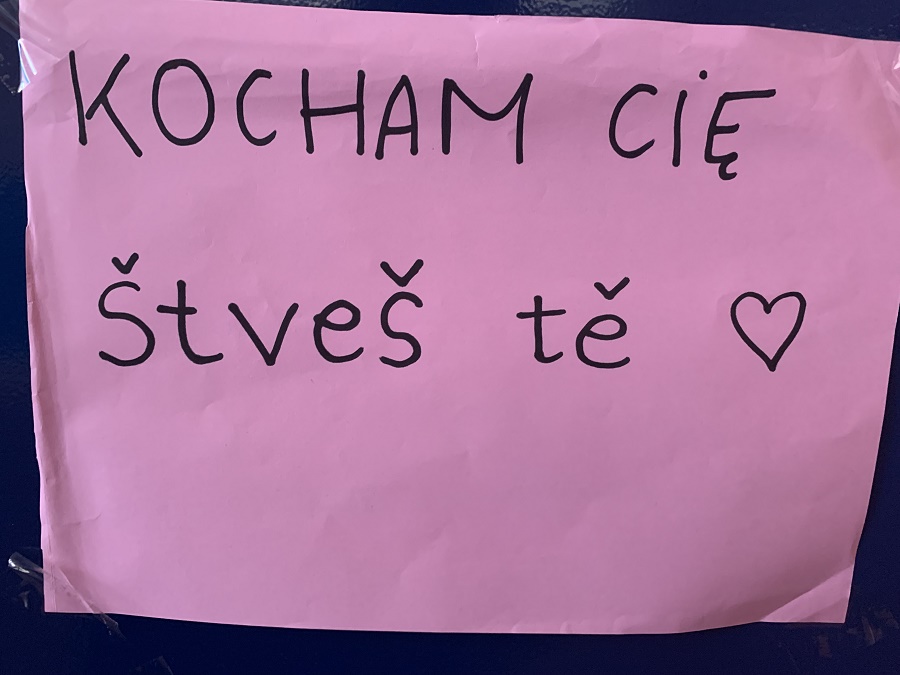 KOCHAM CIĘ
Štveš tě ♡